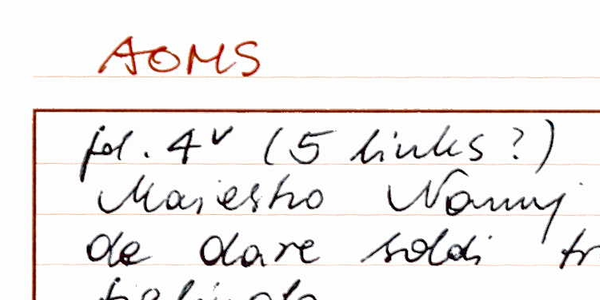 AOMS
fol. 4v (5 links?)
Maiestro Nannj
de dare soldi tr